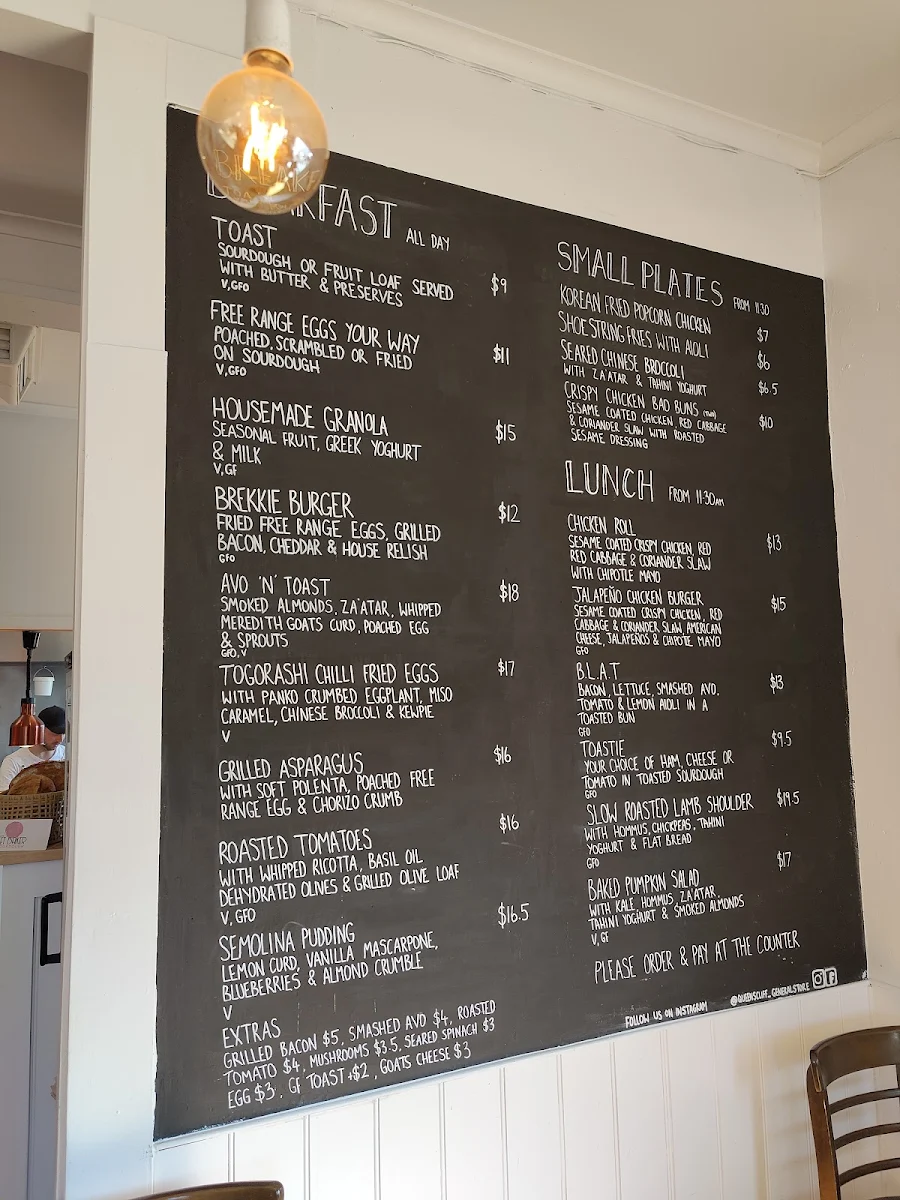 BREAKFAST ALL DAY
TOAST
SOURDOUGH OR FRUIT LOAF SERVED
WITH BUTTER & PRESERVES
V,GFO
$9
FREE RANGE EGGS YOUR WAY
POACHED, SCRAMBLED OR FRIED
ON SOURDOUGH
V,GFO
$11
HOUSEMADE GRANOLA
SEASONAL FRUIT, GREEK YOGHURT
& MILK
V,GF
$15
BREKKIE BURGER
FRIED FREE RANGE EGGS, GRILLED
BACON, CHEDDAR & HOUSE RELISH
GFO
$12
AVO 'N' TOAST
SMOKED ALMONDS, ZA'ATAR, WHIPPED
MEREDITH GOATS CURD, POACHED EGG
& SPROUTS
GFO, V
$18
TOGORASHI CHILLI FRIED EGGS
WITH PANKO CRUMBED EGGPLANT, MISO
CARAMEL, CHINESE BROCCOLI & KEWPIE
V
$17
GRILLED ASPARAGUS
WITH SOFT POLENTA, POACHED FREE
RANGE EGG & CHORIZO CRUMB
$16
ROASTED TOMATOES
WITH WHIPPED RICOTTA, BASIL OIL
DEHYDRATED OLIVES & GRILLED OLIVE LOAF
V, GFO
$16
SEMOLINA PUDDING
LEMON CURD, VANILLA MASCARPONE,
BLUEBERRIES & ALMOND CRUMBLE
V
$16.5
EXTRAS
GRILLED BACON $5, SMASHED AVO $4, ROASTED
TOMATO $4, MUSHROOMS $3.5, SEARED SPINACH $3
EGG $3, GF TOAST +$2, GOATS CHEESE $3
SMALL PLATES FROM 11:30
KOREAN FRIED POPCORN CHICKEN $7
SHOESTRING FRIES WITH AIOLI $6
SEARED CHINESE BROCCOLI
WITH ZA'ATAR & TAHINI YOGHURT $6.5
CRISPY CHICKEN BAO BUNS (TWO) $10
SESAME COATED CHICKEN, RED CABBAGE
& CORIANDER SLAW WITH ROASTED
SESAME DRESSING
LUNCH FROM 11:30AM
CHICKEN ROLL
SESAME COATED CRISPY CHICKEN, RED
RED CABBAGE & CORIANDER SLAW
WITH CHIPOTLE MAYO
$13
JALAPEÑO CHICKEN BURGER
SESAME COATED CRISPY CHICKEN, RED
CABBAGE & CORIANDER SLAW, AMERICAN
CHEESE, JALAPENOS & CHIPOTLE MAYO
GFO
$15
B.L.A.T
BACON, LETTUCE, SMASHED AVO,
TOMATO & LEMON AIOLI IN A
TOASTED BUN
GFO
$13
TOASTIE
YOUR CHOICE OF HAM, CHEESE OR
TOMATO IN TOASTED SOURDOUGH
GFO
$9.5
SLOW ROASTED LAMB SHOULDER
WITH HOMMUS, CHICKPEAS, TAHINI
YOGHURT & FLAT BREAD
GFO
$19.5
BAKED PUMPKIN SALAD
WITH KALE, HOMMUS, ZA'ATAR,
TAHINI YOGHURT & SMOKED ALMONDS
V, GF
$17
PLEASE ORDER & PAY AT THE COUNTER
FOLLOW US ON INSTAGRAM @QUEENSCLIFF_GENERALSTORE